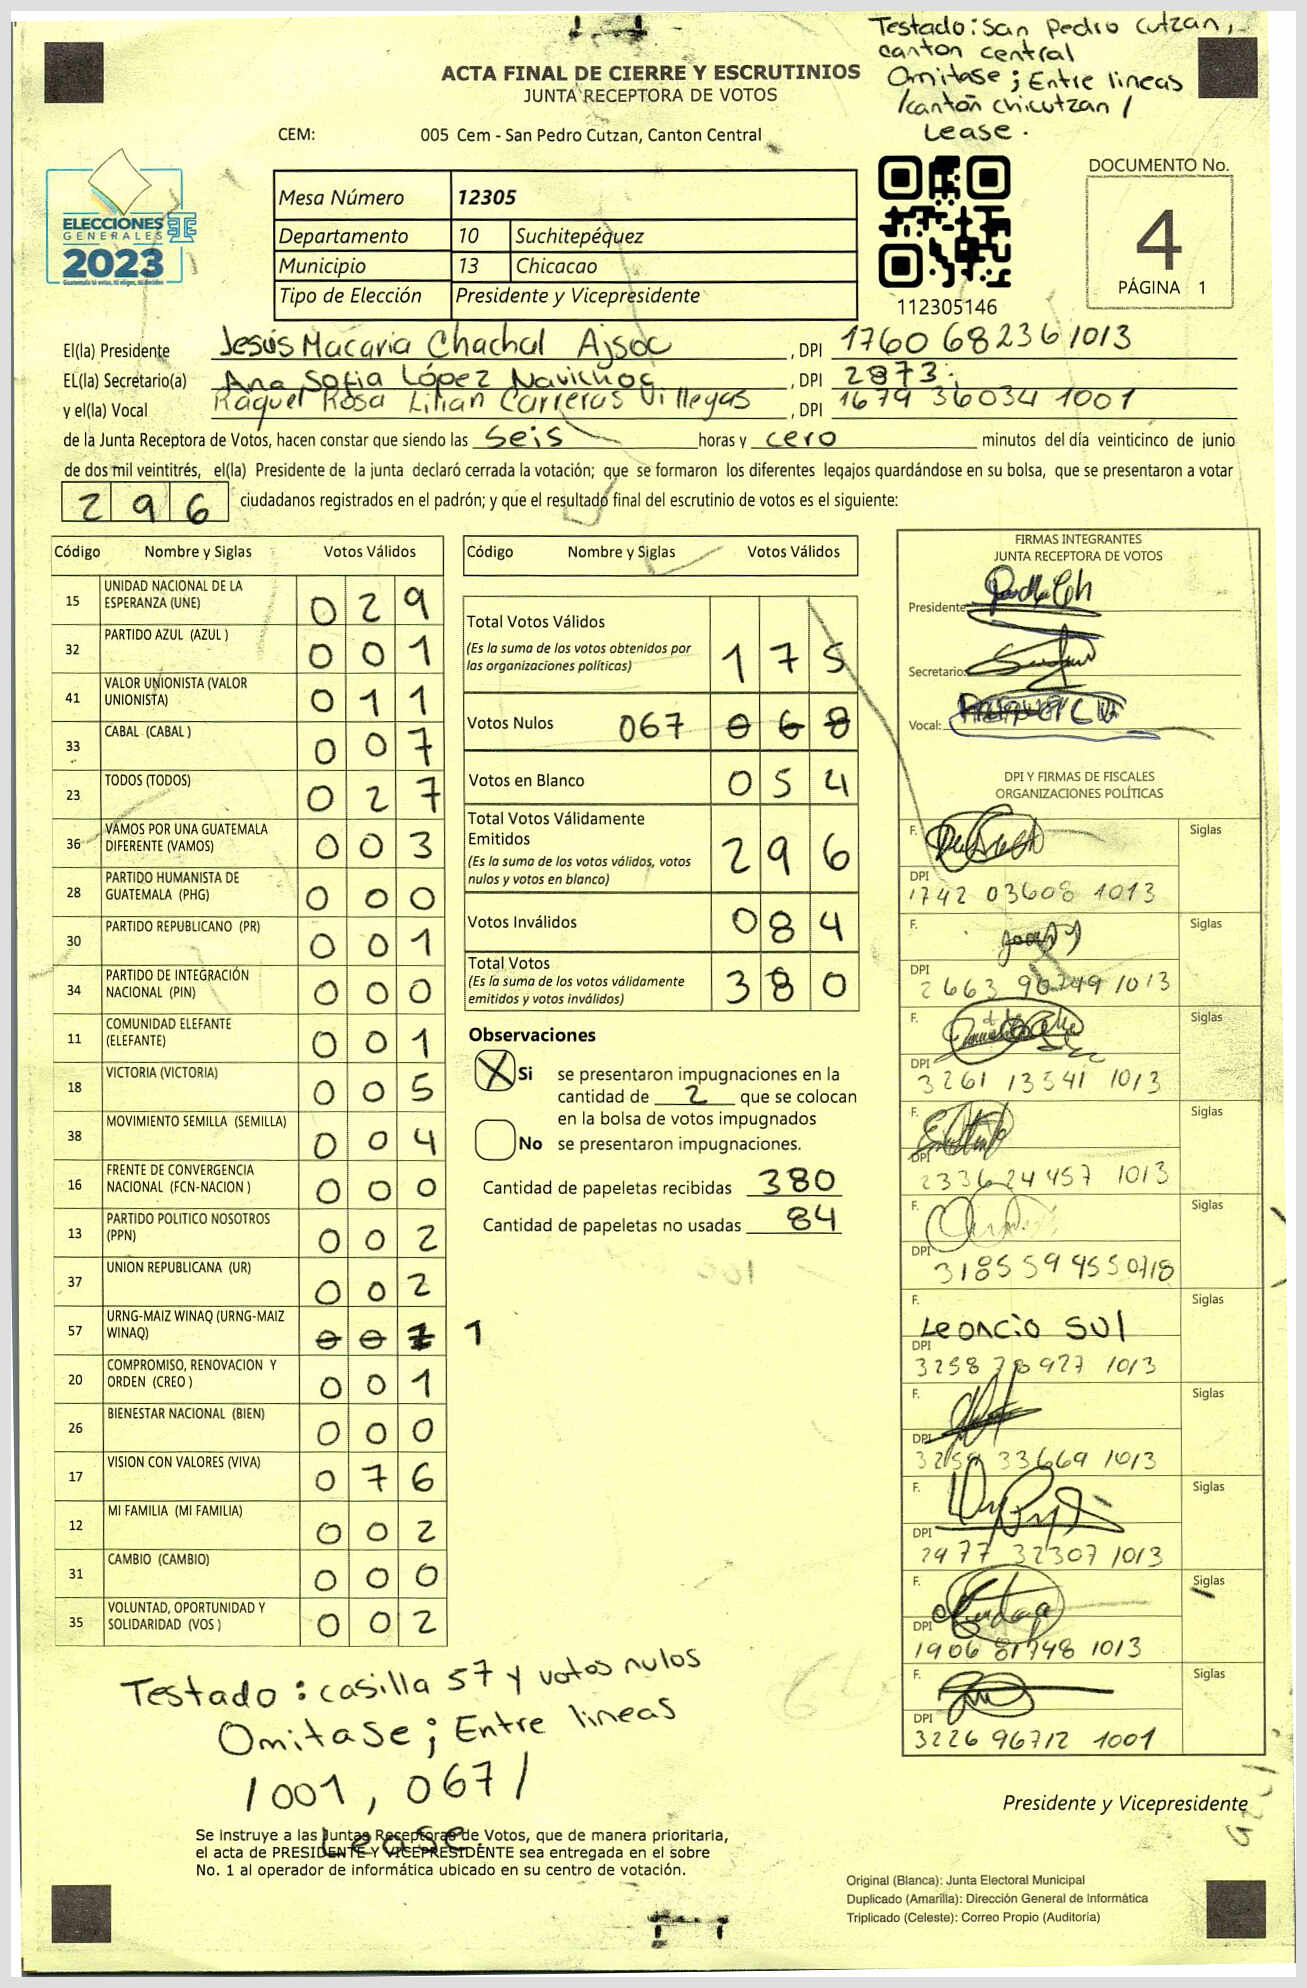 Testado: San Pedro Cutzan,
canton central
Omitase; Entre lineas
/canton chicutzan/
Lease.
ACTA FINAL DE CIERRE Y ESCRUTINIOS
JUNTA RECEPTORA DE VOTOS
CEM: 005 Cem - San Pedro Cutzan, Canton Central
ELECCIONES
GENERALES
2023
Mesa Número 12305
Departamento 10 Suchitepéquez
Municipio 13 Chicacao
Tipo de Elección Presidente y Vicepresidente
112305146
DOCUMENTO No.
4
PÁGINA 1
El(la) Presidente Jesús Macaria Chachal Ajsoc, DPI 1760 68236 1013
EL(la) Secretario(a) Ana Sofia López Navichoc, DPI 2873
y el(la) Vocal Raquel Rosa Lilian Carreras Villegas, DPI 1679 36034 1001
de la Junta Receptora de Votos, hacen constar que siendo las Seis horas y cero minutos del día veinticinco de junio
de dos mil veintitrés, el(la) Presidente de la junta declaró cerrada la votación; que se formaron los diferentes legajos guardándose en su bolsa, que se presentaron a votar
296 ciudadanos registrados en el padrón; y que el resultado final del escrutinio de votos es el siguiente:
Código Nombre y Siglas Votos Válidos
15 UNIDAD NACIONAL DE LA ESPERANZA (UNE) 029
32 PARTIDO AZUL (AZUL ) 001
41 VALOR UNIONISTA (VALOR UNIONISTA) 011
33 CABAL (CABAL ) 007
23 TODOS (TODOS) 027
36 VAMOS POR UNA GUATEMALA DIFERENTE (VAMOS) 003
28 PARTIDO HUMANISTA DE GUATEMALA (PHG) 000
30 PARTIDO REPUBLICANO (PR) 001
34 PARTIDO DE INTEGRACIÓN NACIONAL (PIN) 000
11 COMUNIDAD ELEFANTE (ELEFANTE) 001
18 VICTORIA (VICTORIA) 005
38 MOVIMIENTO SEMILLA (SEMILLA) 004
16 FRENTE DE CONVERGENCIA NACIONAL (FCN-NACION ) 000
13 PARTIDO POLITICO NOSOTROS (PPN) 002
37 UNION REPUBLICANA (UR) 002
57 URNG-MAIZ WINAQ (URNG-MAIZ WINAQ) 00 1
20 COMPROMISO, RENOVACION Y ORDEN (CREO ) 001
26 BIENESTAR NACIONAL (BIEN) 000
17 VISION CON VALORES (VIVA) 076
12 MI FAMILIA (MI FAMILIA) 002
31 CAMBIO (CAMBIO) 000
35 VOLUNTAD, OPORTUNIDAD Y SOLIDARIDAD (VOS ) 002
Código Nombre y Siglas Votos Válidos
Total Votos Válidos
(Es la suma de los votos obtenidos por
las organizaciones políticas) 175
Votos Nulos 067 068
Votos en Blanco 054
Total Votos Válidamente
Emitidos
(Es la suma de los votos válidos, votos
nulos y votos en blanco) 296
Votos Inválidos 084
Total Votos
(Es la suma de los votos válidamente
emitidos y votos inválidos) 380
Observaciones
X Si se presentaron impugnaciones en la
cantidad de 2 que se colocan
en la bolsa de votos impugnados
No se presentaron impugnaciones.
Cantidad de papeletas recibidas 380
Cantidad de papeletas no usadas 84
FIRMAS INTEGRANTES
JUNTA RECEPTORA DE VOTOS
Presidente:
Secretario:
Vocal:
DPI Y FIRMAS DE FISCALES
ORGANIZACIONES POLÍTICAS
F. Siglas
DPI 1742 03608 1013
F. Siglas
DPI 2663 90749 1013
F. Siglas
DPI 3261 13541 1013
F. Siglas
DPI 2336 24457 1013
F. Siglas
DPI 3185 59455 0718
F. Leoncio Sul Siglas
DPI 3258 78927 1013
F. Siglas
DPI 3259 33669 1013
F. Siglas
DPI 2977 32307 1013
F. Siglas
DPI 1906 81748 1013
F. Siglas
DPI 3226 96712 1001
Testado: casilla 57 y votos nulos
Omitase; Entre lineas
/001, 067/
Lease.
Se instruye a las Juntas Receptoras de Votos, que de manera prioritaria,
el acta de PRESIDENTE Y VICEPRESIDENTE sea entregada en el sobre
No. 1 al operador de informática ubicado en su centro de votación.
Presidente y Vicepresidente
Original (Blanca): Junta Electoral Municipal
Duplicado (Amarilla): Dirección General de Informática
Triplicado (Celeste): Correo Propio (Auditoría)